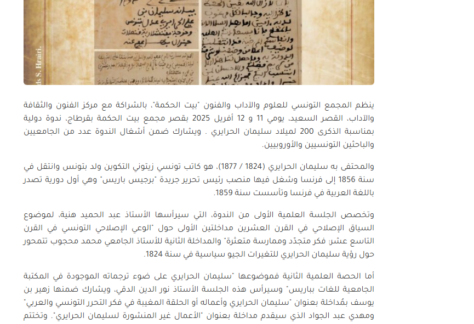 ينظم المجمع التونسي للعلوم والآداب والفنون "بيت الحكمة"، بالشراكة مع مركز الفنون والثقافة
والآداب، القصر السعيد، يومي 11 و 12 أفريل 2025 بقصر مجمع بيت الحكمة بقرطاج، ندوة دولية
بمناسبة الذكرى 200 لميلاد سليمان الحرايري . ويشارك ضمن أشغال الندوة عدد من الجامعيين
والباحثين التونسيين والأوروبيين.
والمحتفى به سليمان الحرايري (1824 / 1877)، هو كاتب تونسي زيتوني التكوين ولد بتونس وانتقل في
سنة 1856 إلى فرنسا وشغل فيها منصب رئيس تحرير جريدة "برجيس باريس" وهي أول دورية تصدر
باللغة العربية في فرنسا وتأسست سنة 1859.
وتخصص الجلسة العلمية الأولى من الندوة، التي سيرأسها الأستاذ عبد الحميد هنية، لموضوع
السياق الإصلاحي في القرن العشرين مداخلتين الأولى حول "الوعي الإصلاحي التونسي في القرن
التاسع عشر: فكر متجدّد وممارسة متعثرة" والمداخلة الثانية للأستاذ الجامعي محمد محجوب تتمحور
حول رؤية سليمان الحرايري للتغيرات الجيو سياسية في سنة 1824.
أما الحصة العلمية الثانية فموضوعها "سليمان الحرايري على ضوء ترجماته الموجودة في المكتبة
الجامعية للغات بباريس" وسيرأس هذه الجلسة الأستاذ نور الدين الدقي، ويشارك ضمنها زهير بن
يوسف بمُداخلة بعنوان "سليمان الحرايري وأعماله أو الحلقة المغيبة في فكر التحرر التونسي والعربي"
ومهدي عبد الجواد الذي سيقدم مداخلة بعنوان "الأعمال غير المنشورة لسليمان الحرايري". وتختتم